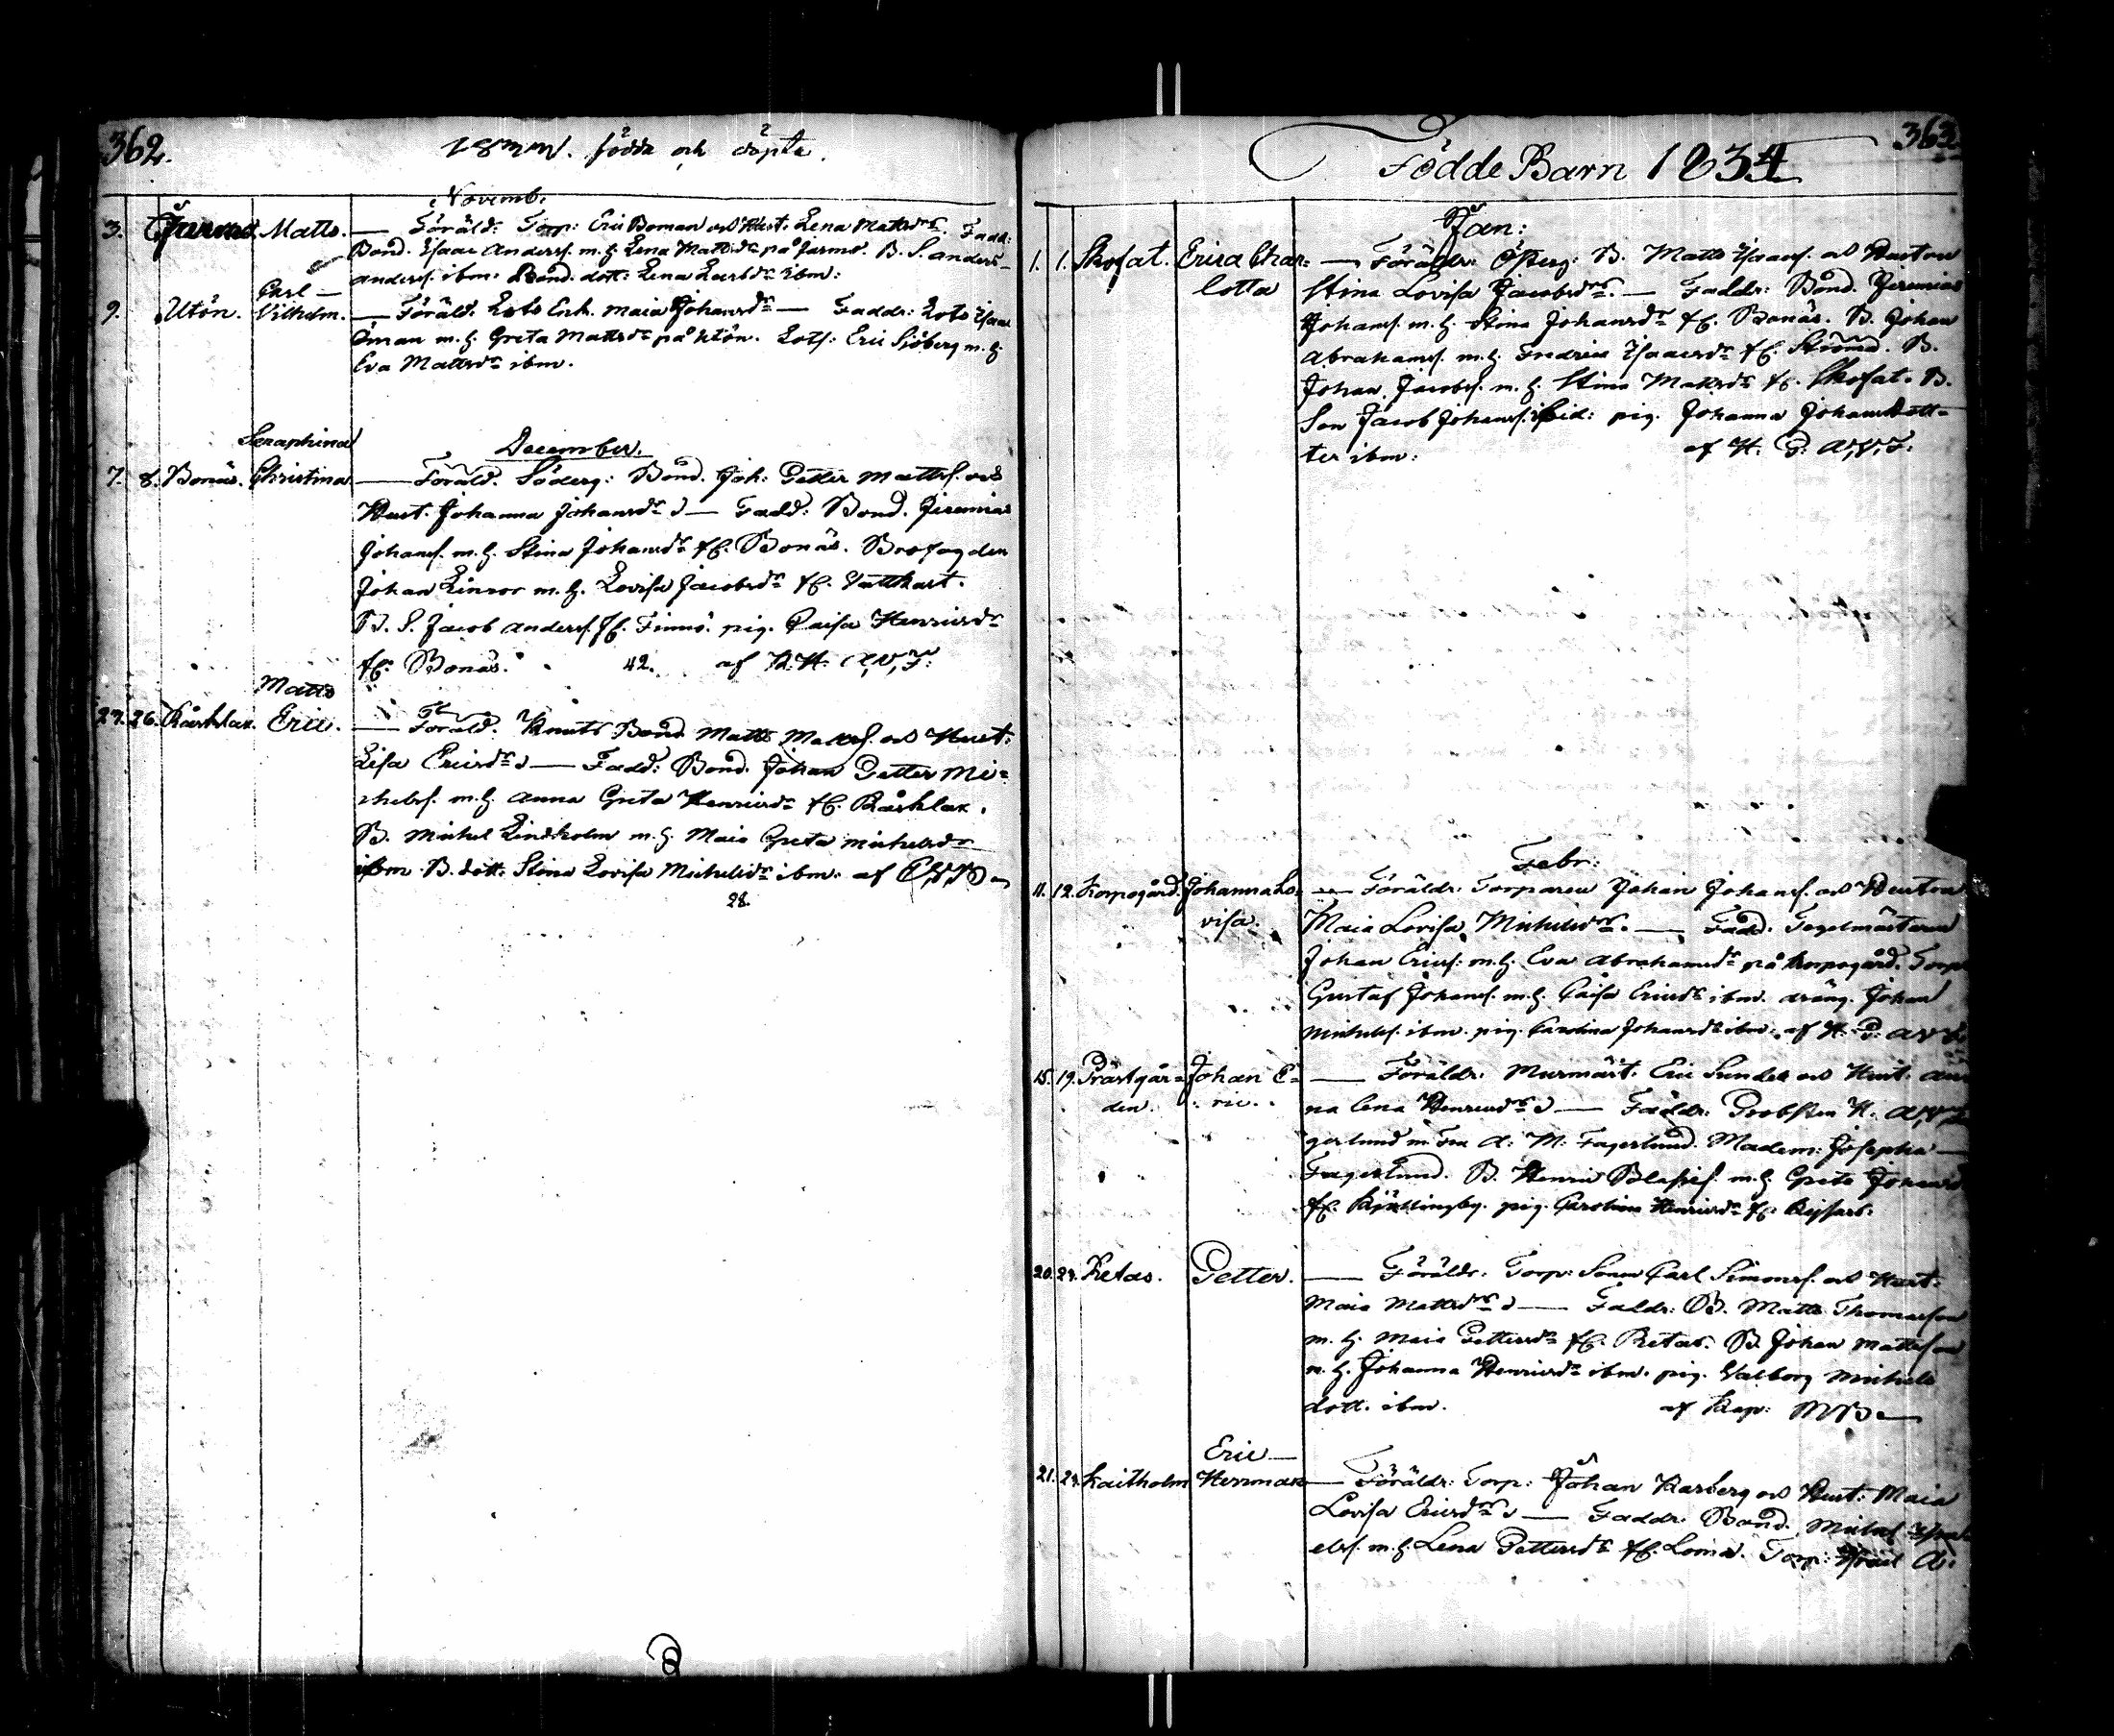 362.
födda och döpta.
Novemb.
3. Matts. — Föräld: Torp: Eric Boman och Hust. Lena Mattsdr. Fadd:
Bond. Isaac Anderss. m. h. Lena Mattsdr på Jarmo. B. S. Anders
Anderss. ibm: Bond. dott: Lena ibm:
Carl —
9. Utön. Vilhelm. — Föräld. Lots Maia Johansdr — Faddr: Lots Isaac
Öman m. h. Greta Mattsdr på Utön. Lots: Eric Sjöberg m. h.
Eva Mattsdr ibm.
Seraphina
December.
7. 8. Bonäs. Christina — Föräld. Söderg: Bond. Joh: Petter Mattss. och
Hust. Johanna Johansdr — Fadd: Bond. Jeremias
Johans. m. h. Stina Johansdr fr. Bonäs. Brofogden
Johan m. h. Lovisa Jacobsdr fr. Vattkast.
B. S. Jacob Anderss. fr. Finnö. pig. Caisa Henricsdr
fr. Bonäs. 42. af
Matts
26. Kårklax. Eric. — Föräld. Knuts Bond Matts Matts. och Hust:
Lisa Ericsdr — Fadd: Bond. Johan Petter Mi=
chelss. m. h. Anna Greta Henricsdr fr. Kårklax.
B. Michel Lindholm m. h. Maia Greta Michelsdr
ibm B. dott: Stina Lovisa Michelsdr ibm: af
28.
363
Födde Barn 1834
Jan:
1. 1. Skofat. Erica Char= — Föräldr: Österg: B. Matts Isaacs. och Hustru
lotta Stina Lovisa Jacobsdr. — Faddr: Bond. Jeremias
Johans. m. h. Stina Johansdr fr. Bonäs. B. Johan
Abrahams. m. h. Fredrica Isaacsdr fr. Strömö. B.
Johan Jacobs. m. h. Stina Mattsdr fr. Skofat. B.
Son Jacob Johans. ibid: pig. Johanna Johansdott=
ter ibm: af H. P. A. V. F.
Febr:
11. 12. Korpogård. Johanna Lo= — Föräldr: Torparen Johan Johans. och Hustru
visa. Maia Lovisa Michelsdr. — Fadd. Tegelmästaren
Johan Erics: m. h. Eva Abrahamsdr på Korpogård. Torp
Gustaf Johans. m. h. Caisa Ericsdr ibm. dräng. Johan
Michels. ibm. pig. Carolina Johansdr ibm. af H. P. A V
15. 19. Prästgår= Johan E= — Föräldr: Murmäst. Eric Sundell och Hust. An
den. ric. na Lena Henricsdr — Faddr. Probsten H. A. V.
gerlund m Fru A: M: Fagerlund. Madem: Josepha —
Fagerlund. B. Henric m. h. Greta
fr. Kjällingby. pig. Carolina Henricsdr fr.
20. 24. Retas. Petter. — Föräldr. Torp: Sonen Carl Simons. och Hust.
Maia Mattsdr — Faddr: B. Matts Thomasson
m. h. Maia Pettersdr fr. Retas. B. Johan Mattsson
m. h. Johanna Henricsdr ibm. pig. Valborg Michels
dott. ibm. af Kap:
Eric —
21. 24. Kaitholm Herrman — Föräldr: Torp: Johan Karberg och Hust: Maia
Lovisa Ericsdr — Faddr. Bond. Michel
els. m. h. Lena Pettersdr fr. Lomä. Torp: A: